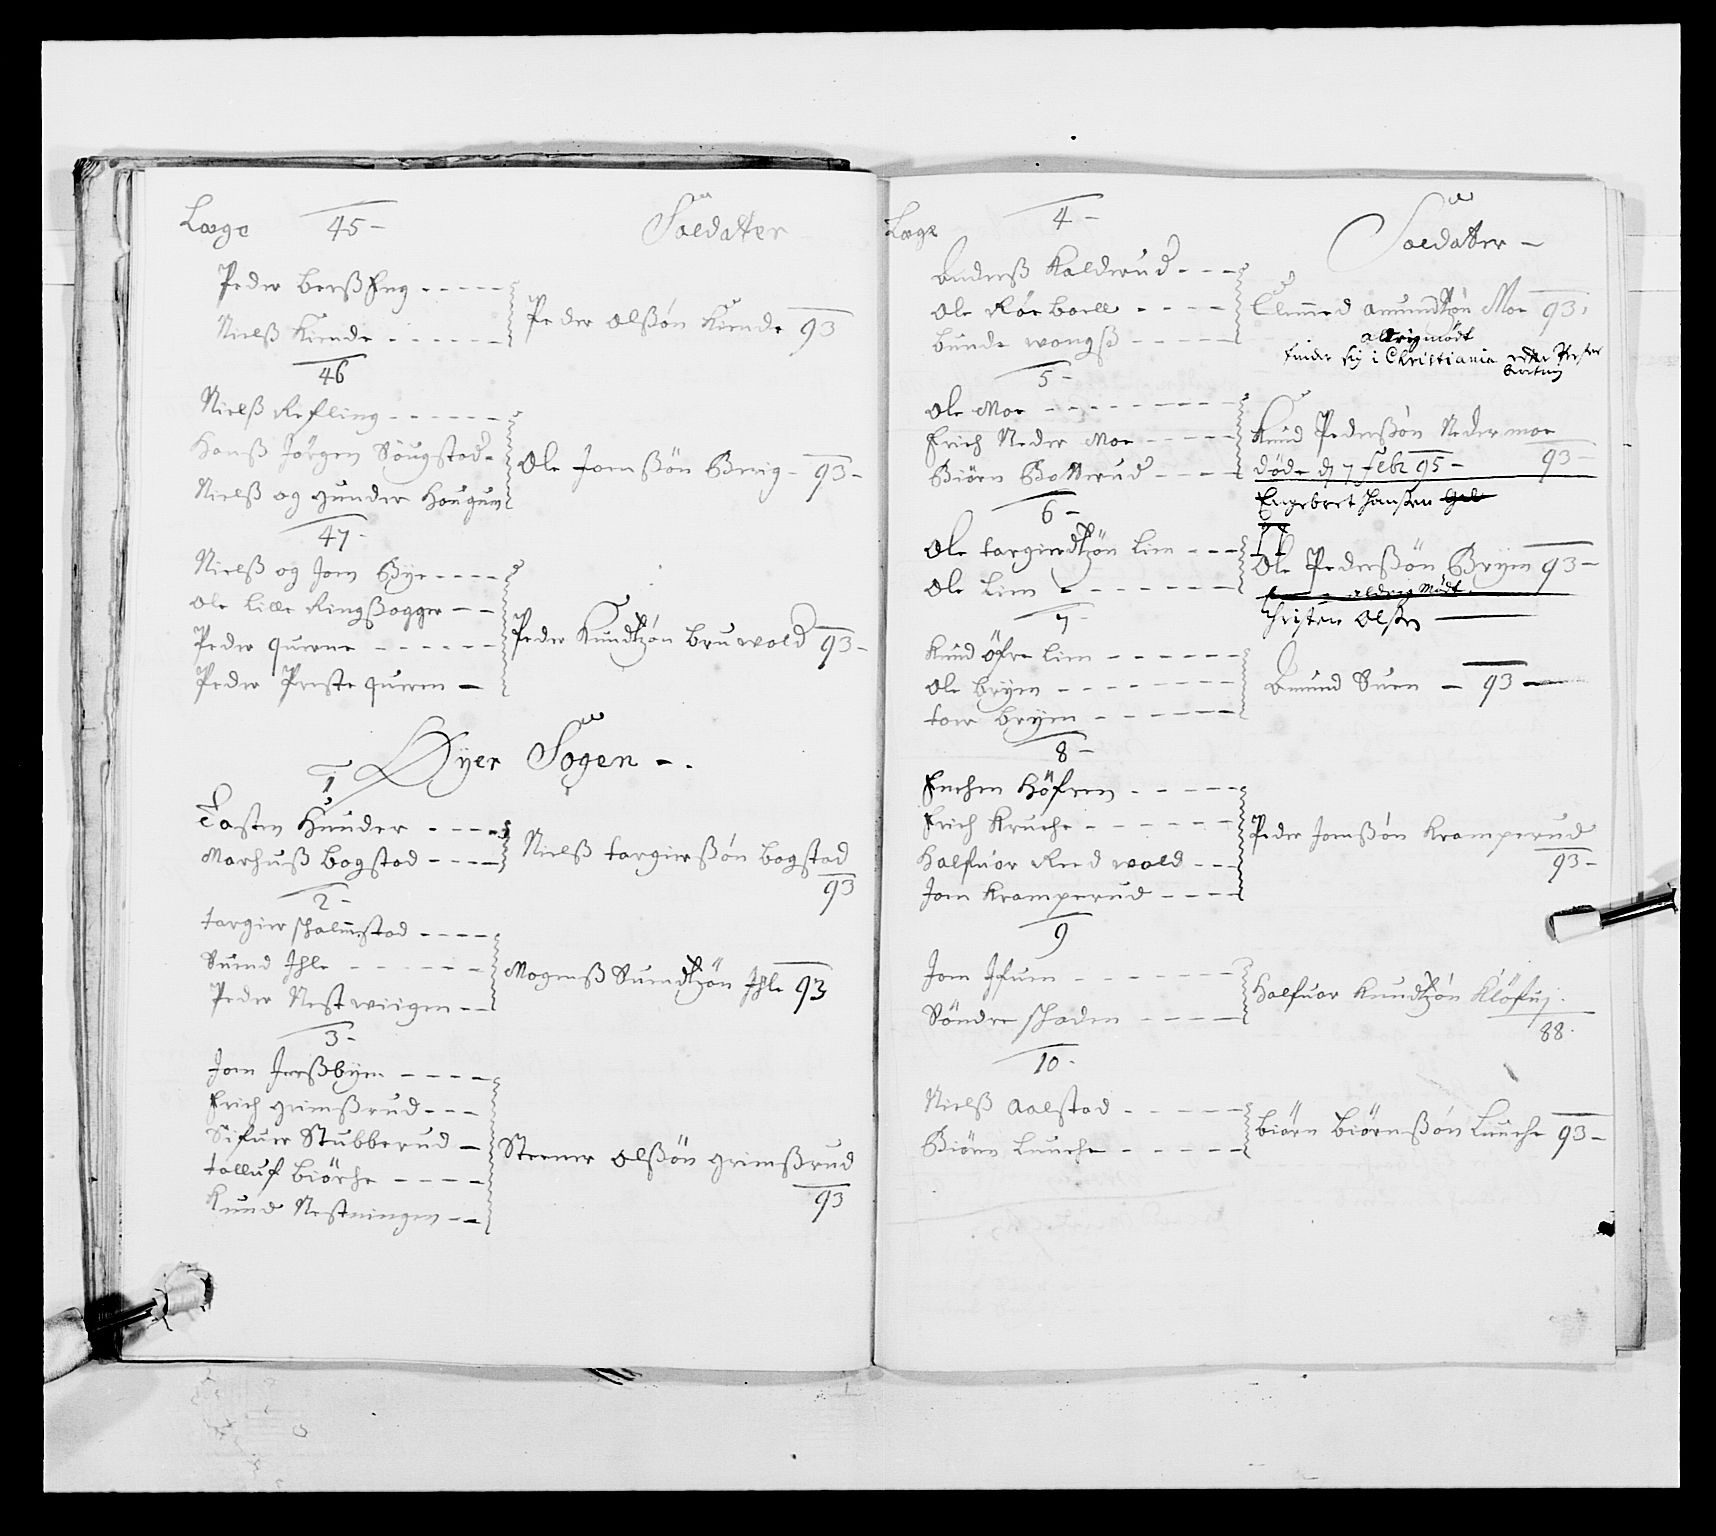 Læge 45 - Soldatter
Peder berß Eng - - - - -
Nielß Kiende - - - - - -
Peder olßön Kiende 93
46
Nielß Refling - - - - - -
Hanß Jörgen Söugstad -
Nielß og gunder Hougum
Ole Jonßön Berig - 93 -
47 -
Nielß og Jon Bye - - - -
Ole Lille Ringßagger - -
Peder querne - - - - - -
Peder Preste queren -
Peder Knudtzön bruwold 93 -
Øyer Sogen - .
1
Tosten Hunder - - - -
Marhuß bogstad - - - -
Nielß torgierßön bogstad
93
2 -
torgier schalmstad - - - -
Suend Ihle - - - - - -
Peder Nestwiigen - -
Mogenß Suendtzön Ihle 93
3 -
Jon Jerßbyen - - - -
Erich grimßrud - - -
Sifuer Stubberud -
tolluf biörke - - - -
Knud Nestningen - -
Steener olßön grimßrud
93
Læge 4 - Soldatter -
Anderß Kalderud - - -
Ole Röeboell - - - -
bunde wongß - - - - -
Clemmed amundtzön Moe 93 ,
aldrig mödt
finder sig i Christiania
5 -
Ole Moe - - - - - - - -
Erich Neder Moe - - - -
Biörn Botterud - - - -
Knud Pederßön Neder moe
93 -
döde d 7 febr 95 -
Engebret Hanßen
6 -
Ole torgierdtzön Lien - - -
Ole Lien - - - - - -
Ole Pederßön Bryen 93 -
aldrig Mödt
Christen Olßen
7 -
Knud öfre Lien - - - - - -
Ole bryen - - - - - - - -
tor bryen - - - - - -
Amund Suen - 93 -
8 -
Enchen Höfren - - - - -
Erich Kruche - - - - - -
Halfuor Reed wold - - -
Jon Kramperud - - - -
Peder Jonßön Kramperud
93 -
9
Jon Jfuen - - - - - - -
Söndre schaden - - - -
Halfuor Knudtzön Klöfuj .
88 .
10 -
Nielß Aalstad - - - - -
Biörn Lunche - - - - - -
biörn biörnßön Lunche 93 -